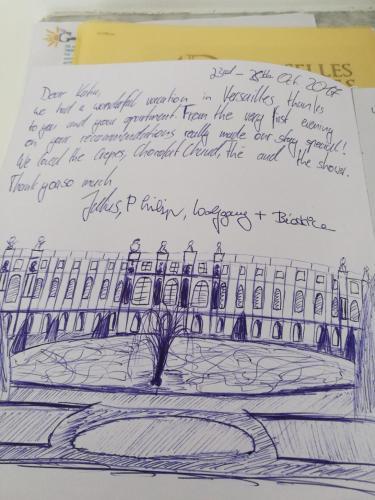 ELLES
23rd - 28th Oct. 20
Dear Katia,
we had a wonderful vacation in Versailles, thanks
to you and your apartment. From the very first evening
on your recommendations really made our stay special!
We loved the Crêpes, Chocolat Chaud, thé and the shower.
Thank you so much
Julius, Philipp, Wolfgang + Beatrice